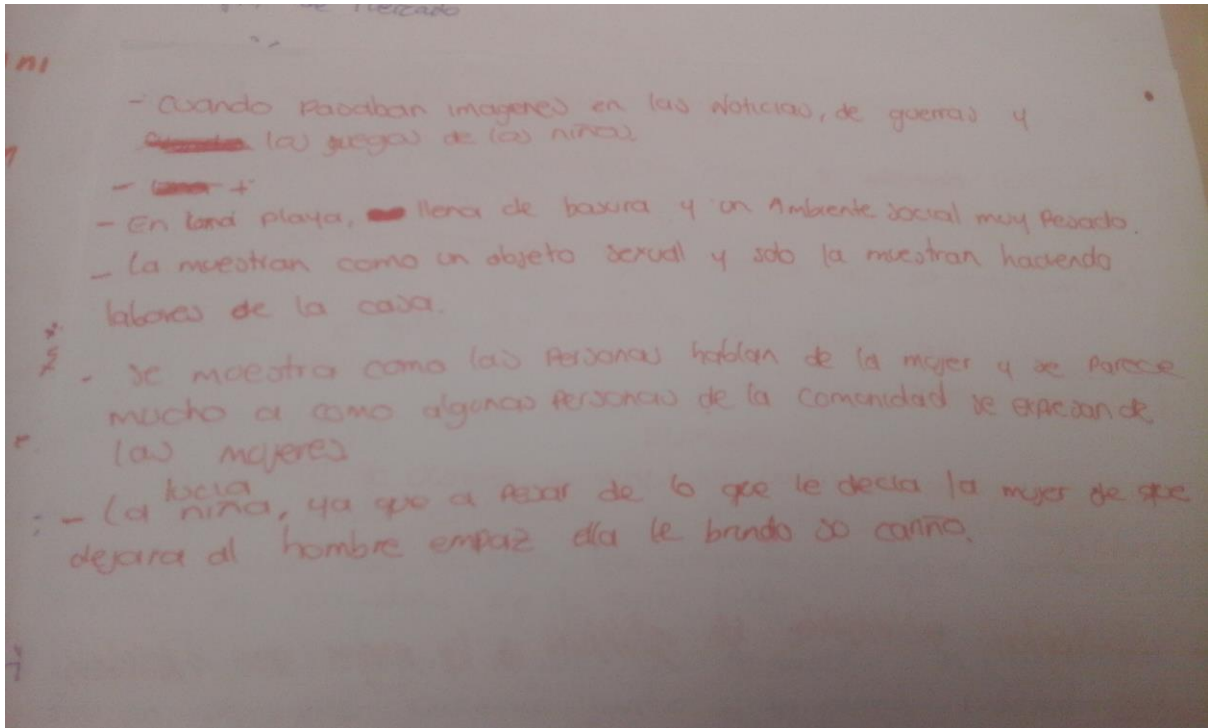 de Mercado
- Cuando Pasaban imagenes en las Noticias, de guerras y
los juegos de los niños
- +
- En playa, llena de basura y un Ambiente social muy Pesado.
- la muestran como un objeto sexual y solo la muestran haciendo
labores de la casa.
- se muestra como las Personas hablan de la mujer y se Parece
mucho a como algunas Personas de la comunidad se expresan de
las mujeres
lucia
- La niña, ya que a Pesar de lo que le decia la mujer de que
dejara al hombre empaz ella le brindo so cariño.